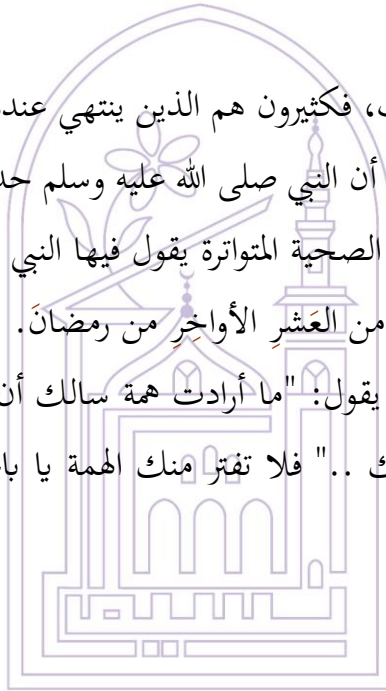 ـ، فكثيرون هم الذين ينتهي عند
أن النبي صلى الله عليه وسلم حد
الصحية المتواترة يقول فيها النبي
من العَشرِ الأواخِرِ من رمضانَ.
يقول: "ما أرادت همة سالك أن
ك .." فلا تفتر منك الهمة يا با